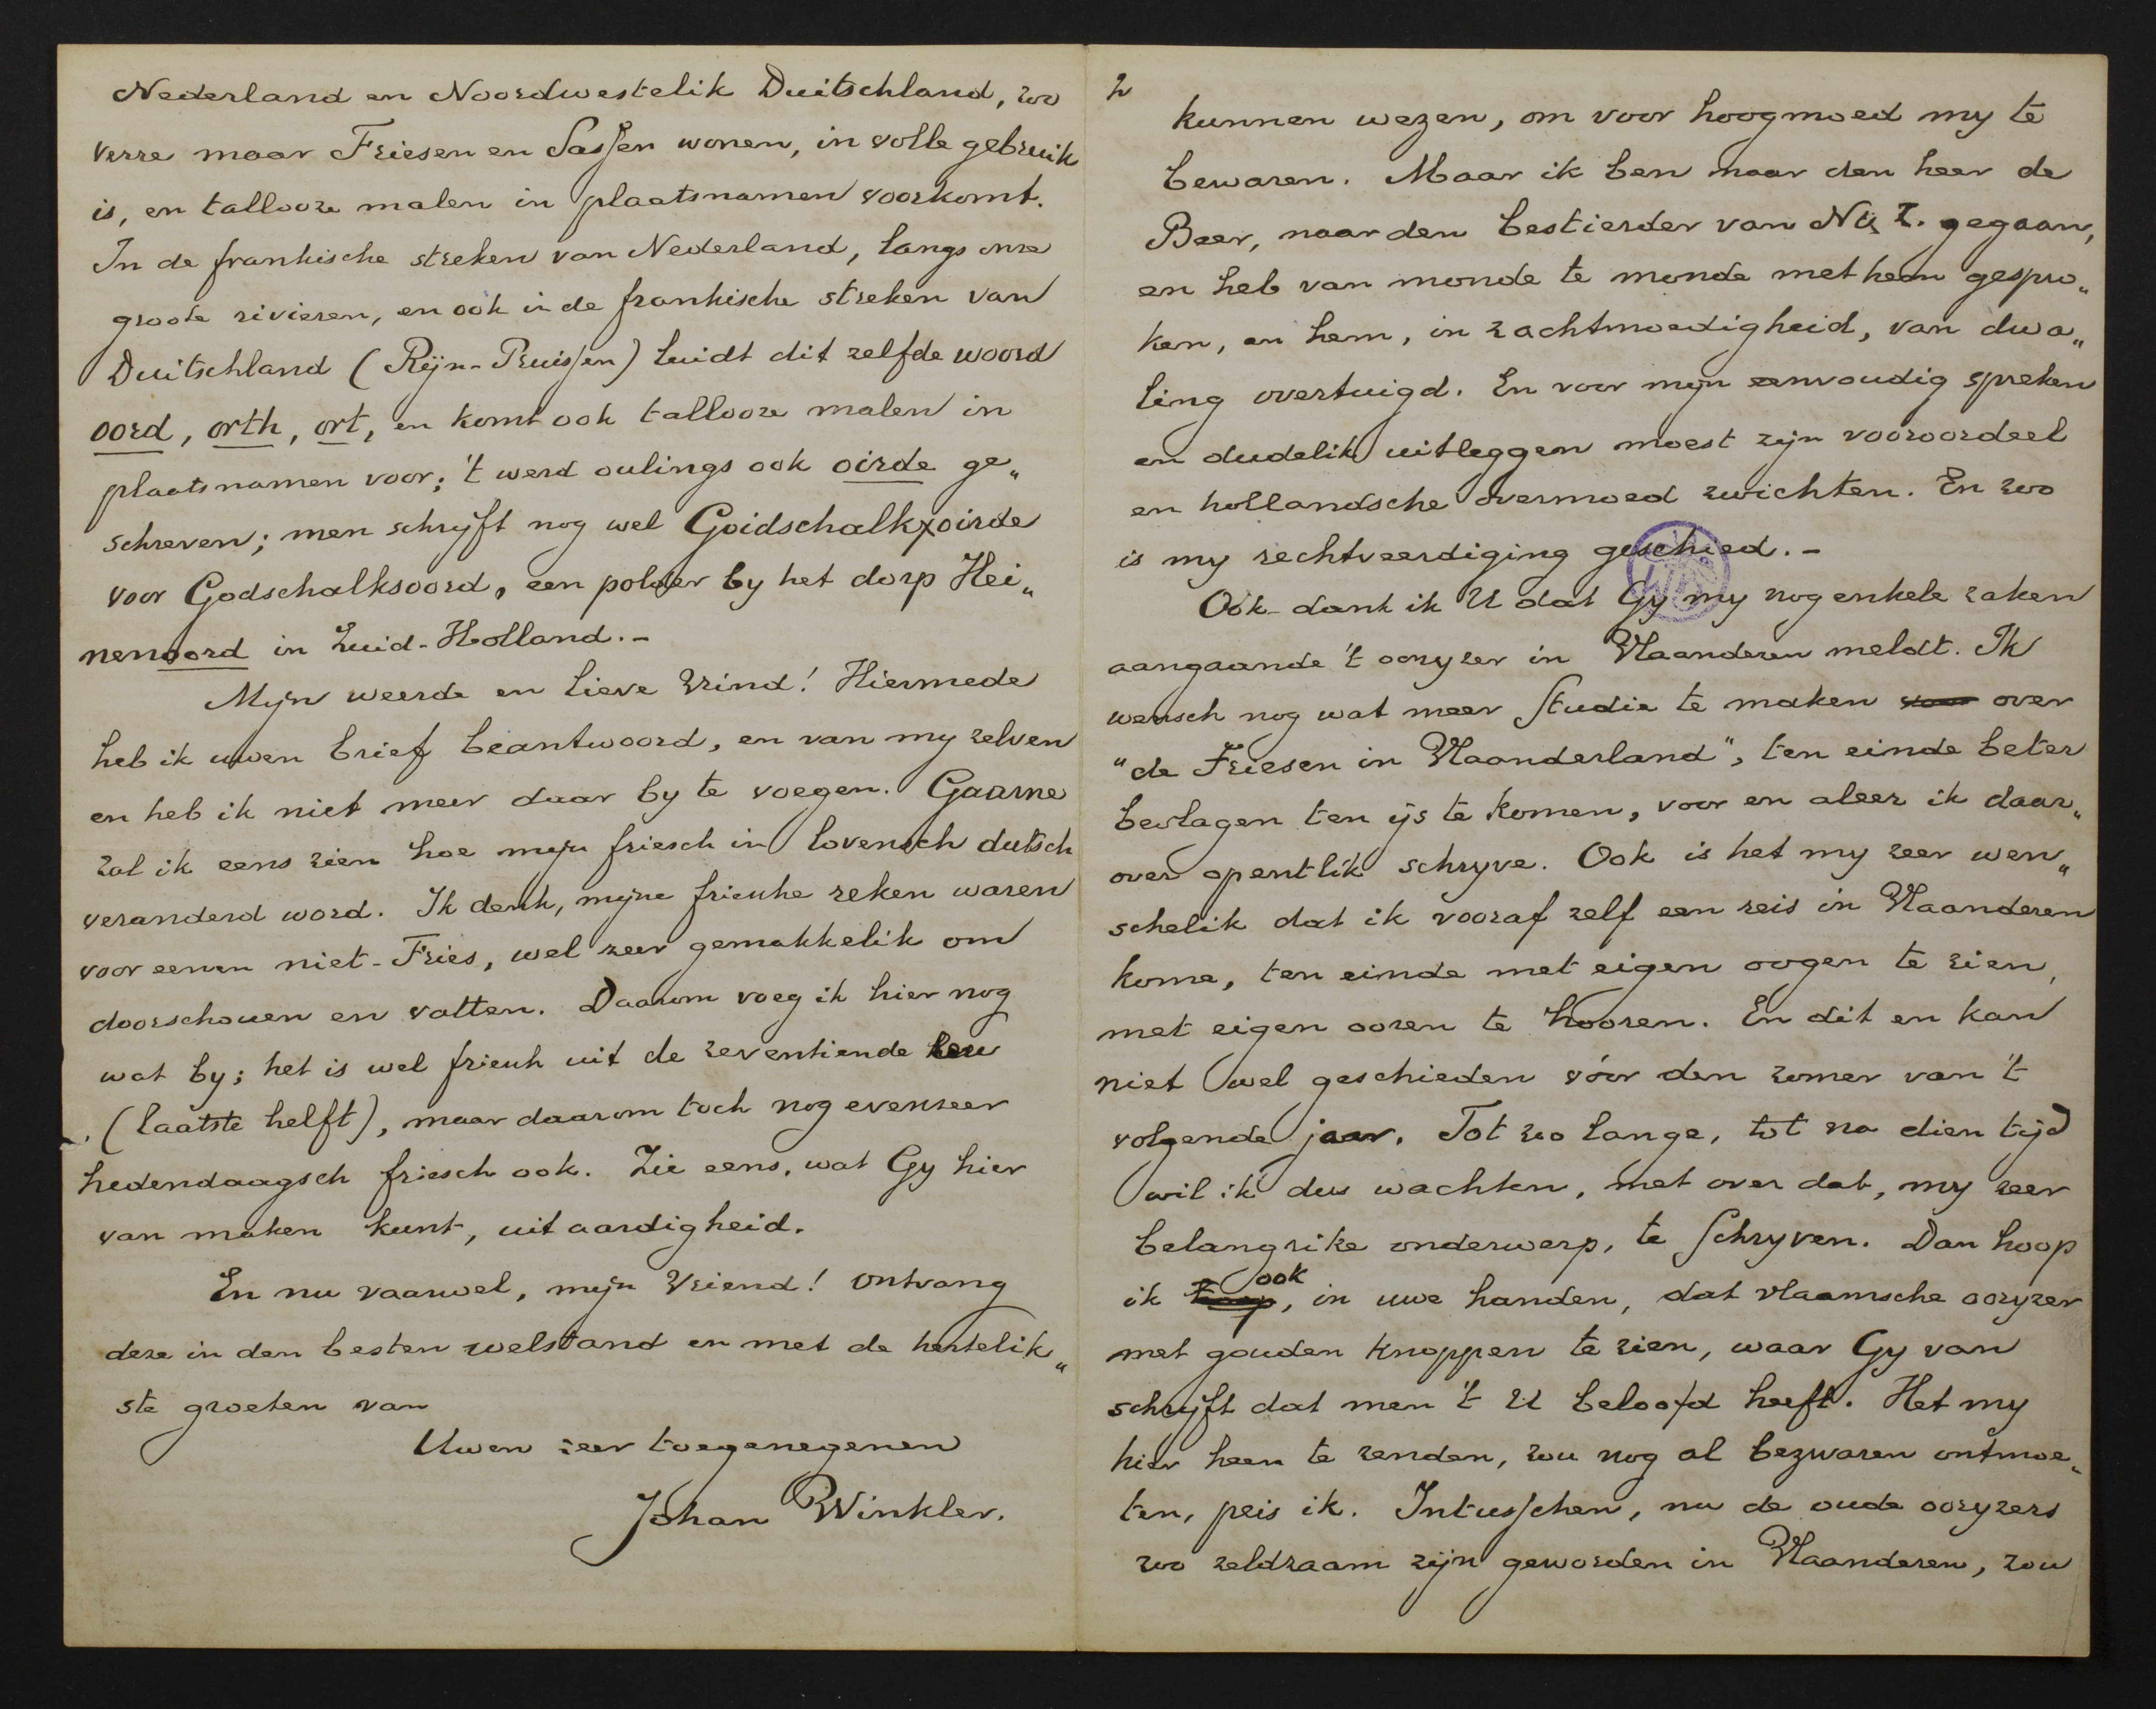 Nederland en Noordwestelik Duitschland, zoo
verre maar Friesen en Sassen wonen, in volle gebruik
is, en tallooze malen in plaatsnamen voorkomt.
In de frankische streken van Nederland, langs onze
groote rivieren, en ook in de frankische streken van
Duitschland (Rijn-Pruissen) luidt dit zelfde woord
oord, orth, ort, en komt ook tallooze malen in
plaatsnamen voor; 't werd oulings ook oirde ge„
schreven; men schrijft nog wel Goidschalkxoirde
voor Godschalksoord, een polder by het dorp Hei„
nenoord in Zuid-Holland.-
Mijn weerde en lieve Vrind! Hiermede
heb ik uwen brief beantwoord, en van my zelven
en heb ik niet meer daar by te voegen. Gaarne
zal ik eens zien hoe mijn friesch in lovensch dutsch
veranderd word. Ik denk, mijne friesche reken waren
voor eenen niet-Fries, wel zeer gemakkelik om
doorschouen en vatten. Daarom voeg ik hier nog
wat by; het is wel friesch uit de zeventiende eeu
(laatste helft), maar daarom toch nog evenzeer
hedendaagsch friesch ook. Zie eens, wat Gy hier
van maken kunt, uit aardigheid.
En nu vaarwel, mijn Vriend! ontvang
deze in den besten welstand en met de hertelik„
ste groeten van
Uwen zeer toegenegenen
Johan Winkler.
2
kunnen wezen, om voor hoogmoed my te
bewaren. Maar ik ben naar den heer de
Beer, naar den bestierder van N. & Z. gegaan,
en heb van monde te monde met hem gespro„
ken, en hem, in zachtmoedigheid, van dwa„
ling overtuigd. En voor mijn eenvoudig spreken
en dudelik uitleggen moest zijn vooroordeel
en hollandsche overmoed zwichten. En zoo
is my rechtveerdiging geschied.-
Ook dank ik U dat Gy my nog enkele zaken
aangaande 't ooryzer in Vlaanderen meldt. Ik
wensch nog wat meer studie te maken over
"de Friesen in Vlaanderland", ten einde beter
beslagen ten ijs te komen, voor en aleer ik daar„
over opentlik schryve. Ook is het my zeer wen„
schelik dat ik vooraf zelf een reis in Vlaanderen
kome, ten einde met eigen oogen te zien,
met eigen ooren te hooren. En dit en kan
niet wel geschieden vóór den zomer van 't
volgende jaar. Tot zoo lange, tot na dien tijd
wil ik dus wachten, met over dat, my zeer
belangrike onderwerp, te schryven. Dan hoop
ik ook, in uwe handen, dat vlaamsche ooryzer
met gouden knoppen te zien, waar Gy van
schrijft dat men 't U beloofd heeft. Het my
hier heen te zenden, zou nog al bezwaren ontmoe„
ten, peis ik. Intusschen, nu de oude ooryzers
zoo zeldzaam zijn geworden in Vlaanderen, zou